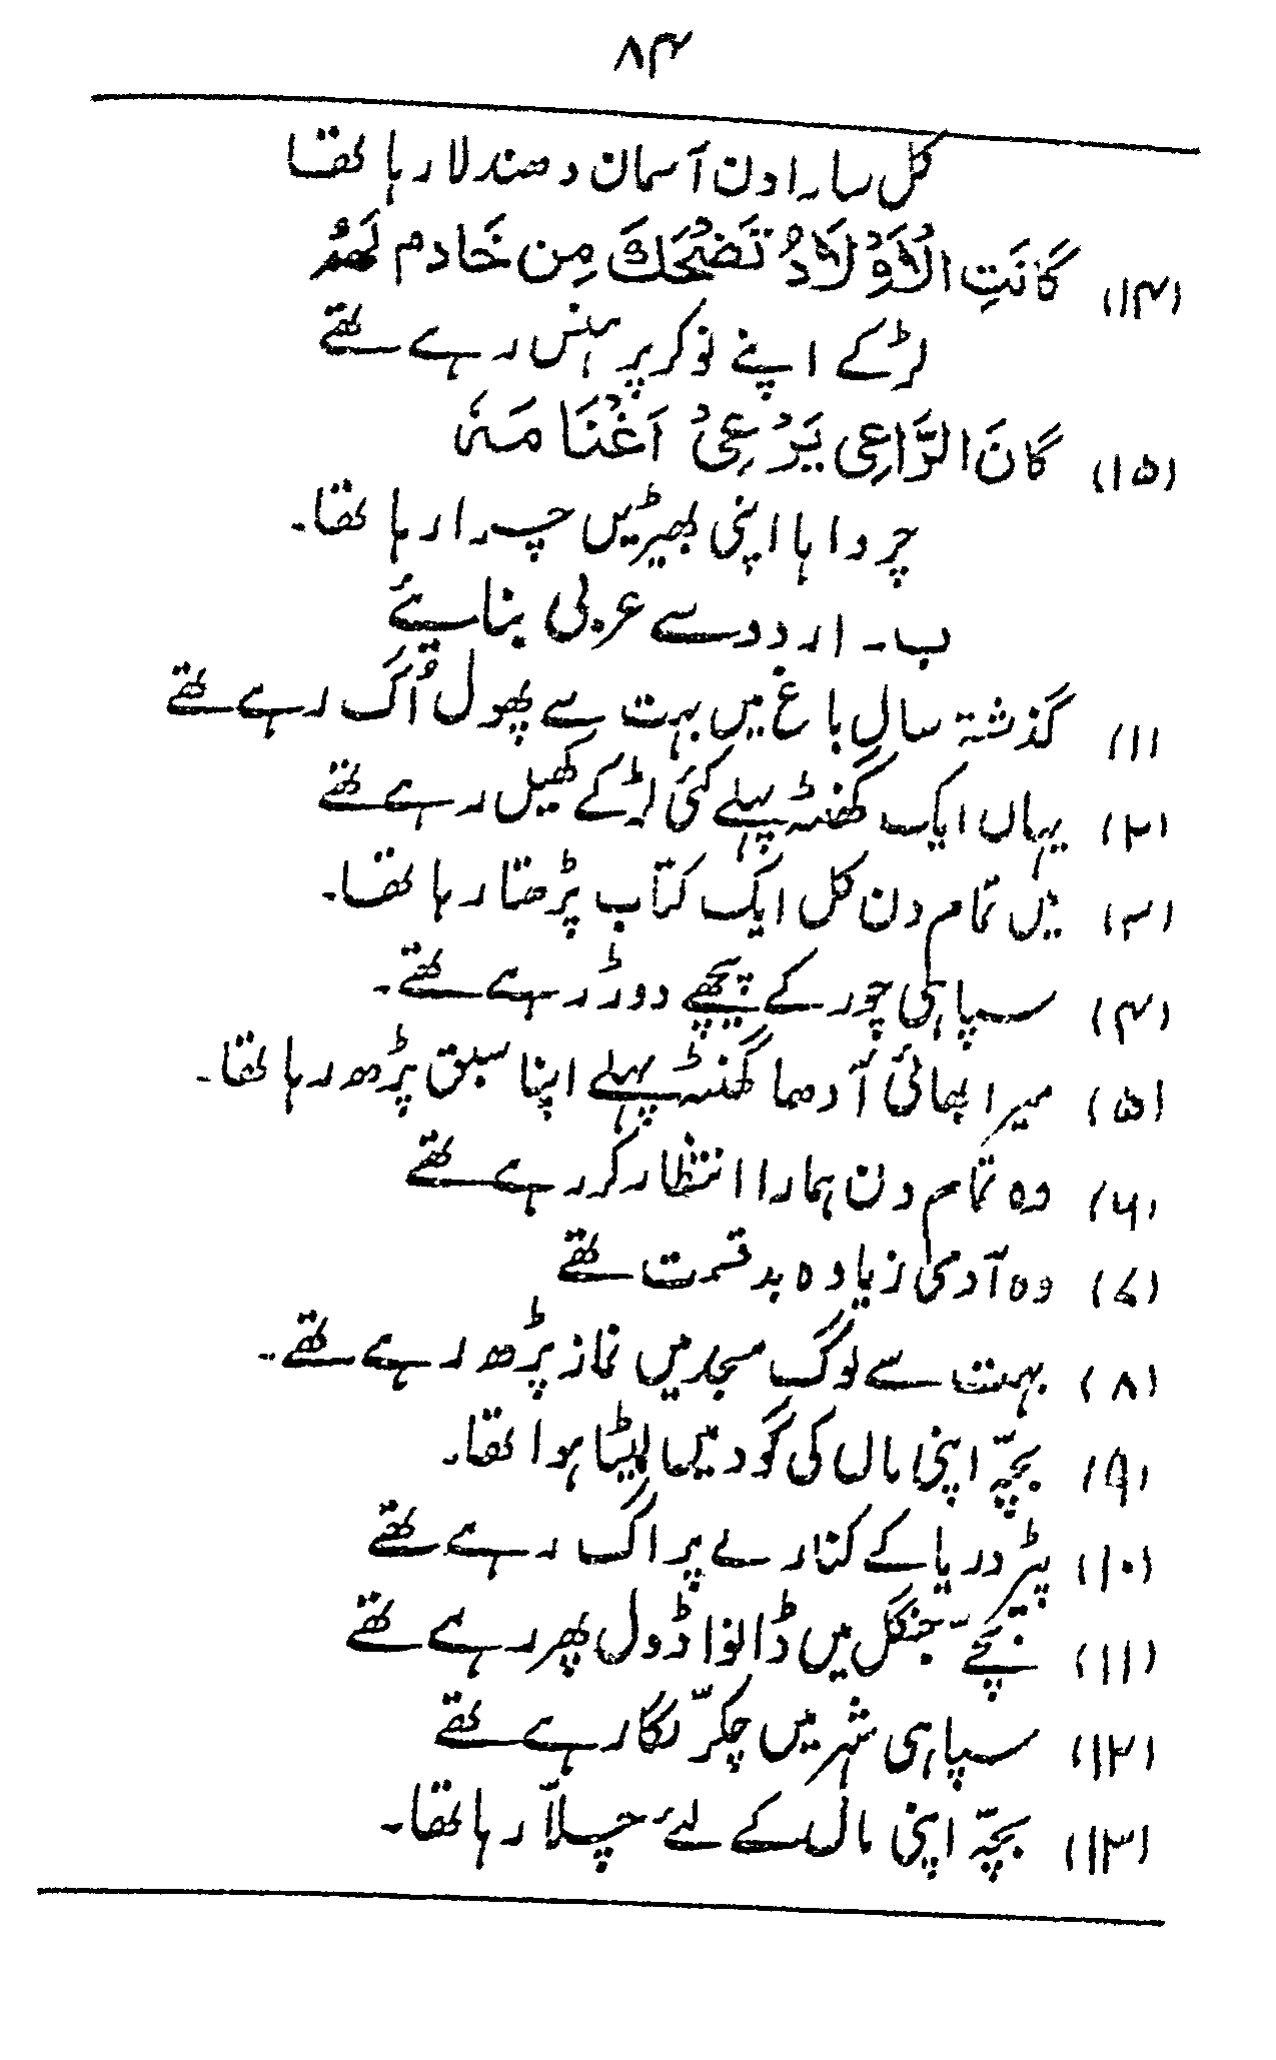 ۸۴
کل سارا دن آسمان دھندلا رہا تھا
(۱۴) کَانَتِ الْاَوْلَادُ تَضْحَكَ مِن خَادم لَهُمْ
لڑکے اپنے نوکر پر ہنس رہے تھے
(۱۵) کَانَ الرَّاعِی یَرْعِیْ اَغْنَامَهٗ
چرواہا اپنی بھیڑیں چرا رہا تھا۔
ب۔ اردو سے عربی بنایئے
(۱) گذشتہ سال باغ میں بہت سے پھول اُگ رہے تھے
(۲) یہاں ایک گھنٹہ پہلے کئی لڑکے کھیل رہے تھے
(۳) میں تمام دن کل ایک کتاب پڑھتا رہا تھا۔
(۴) سپاہی چور کے پیچھے دوڑ رہے تھے۔
(۵) میرا بھائی آدھا گھنٹہ پہلے اپنا سبق پڑھ رہا تھا۔
(۶) وہ تمام دن ہمارا انتظار کر رہے تھے
(۷) وہ آدمی زیادہ بدقسمت تھے
(۸) بہت سے لوگ مسجد میں نماز پڑھ رہے تھے۔
(۹) بچّہ اپنی ماں کی گود میں لیٹا ہوا تھا۔
(۱۰) پیڑ دریا کے کنارے پر اگ رہے تھے
(۱۱) بچّے جنگل میں ڈانواڈول پھر رہے تھے
(۱۲) سپاہی شہر میں چکّر لگا رہے تھے
(۱۳) بچّہ اپنی ماں کے لئے چلاّ رہا تھا۔